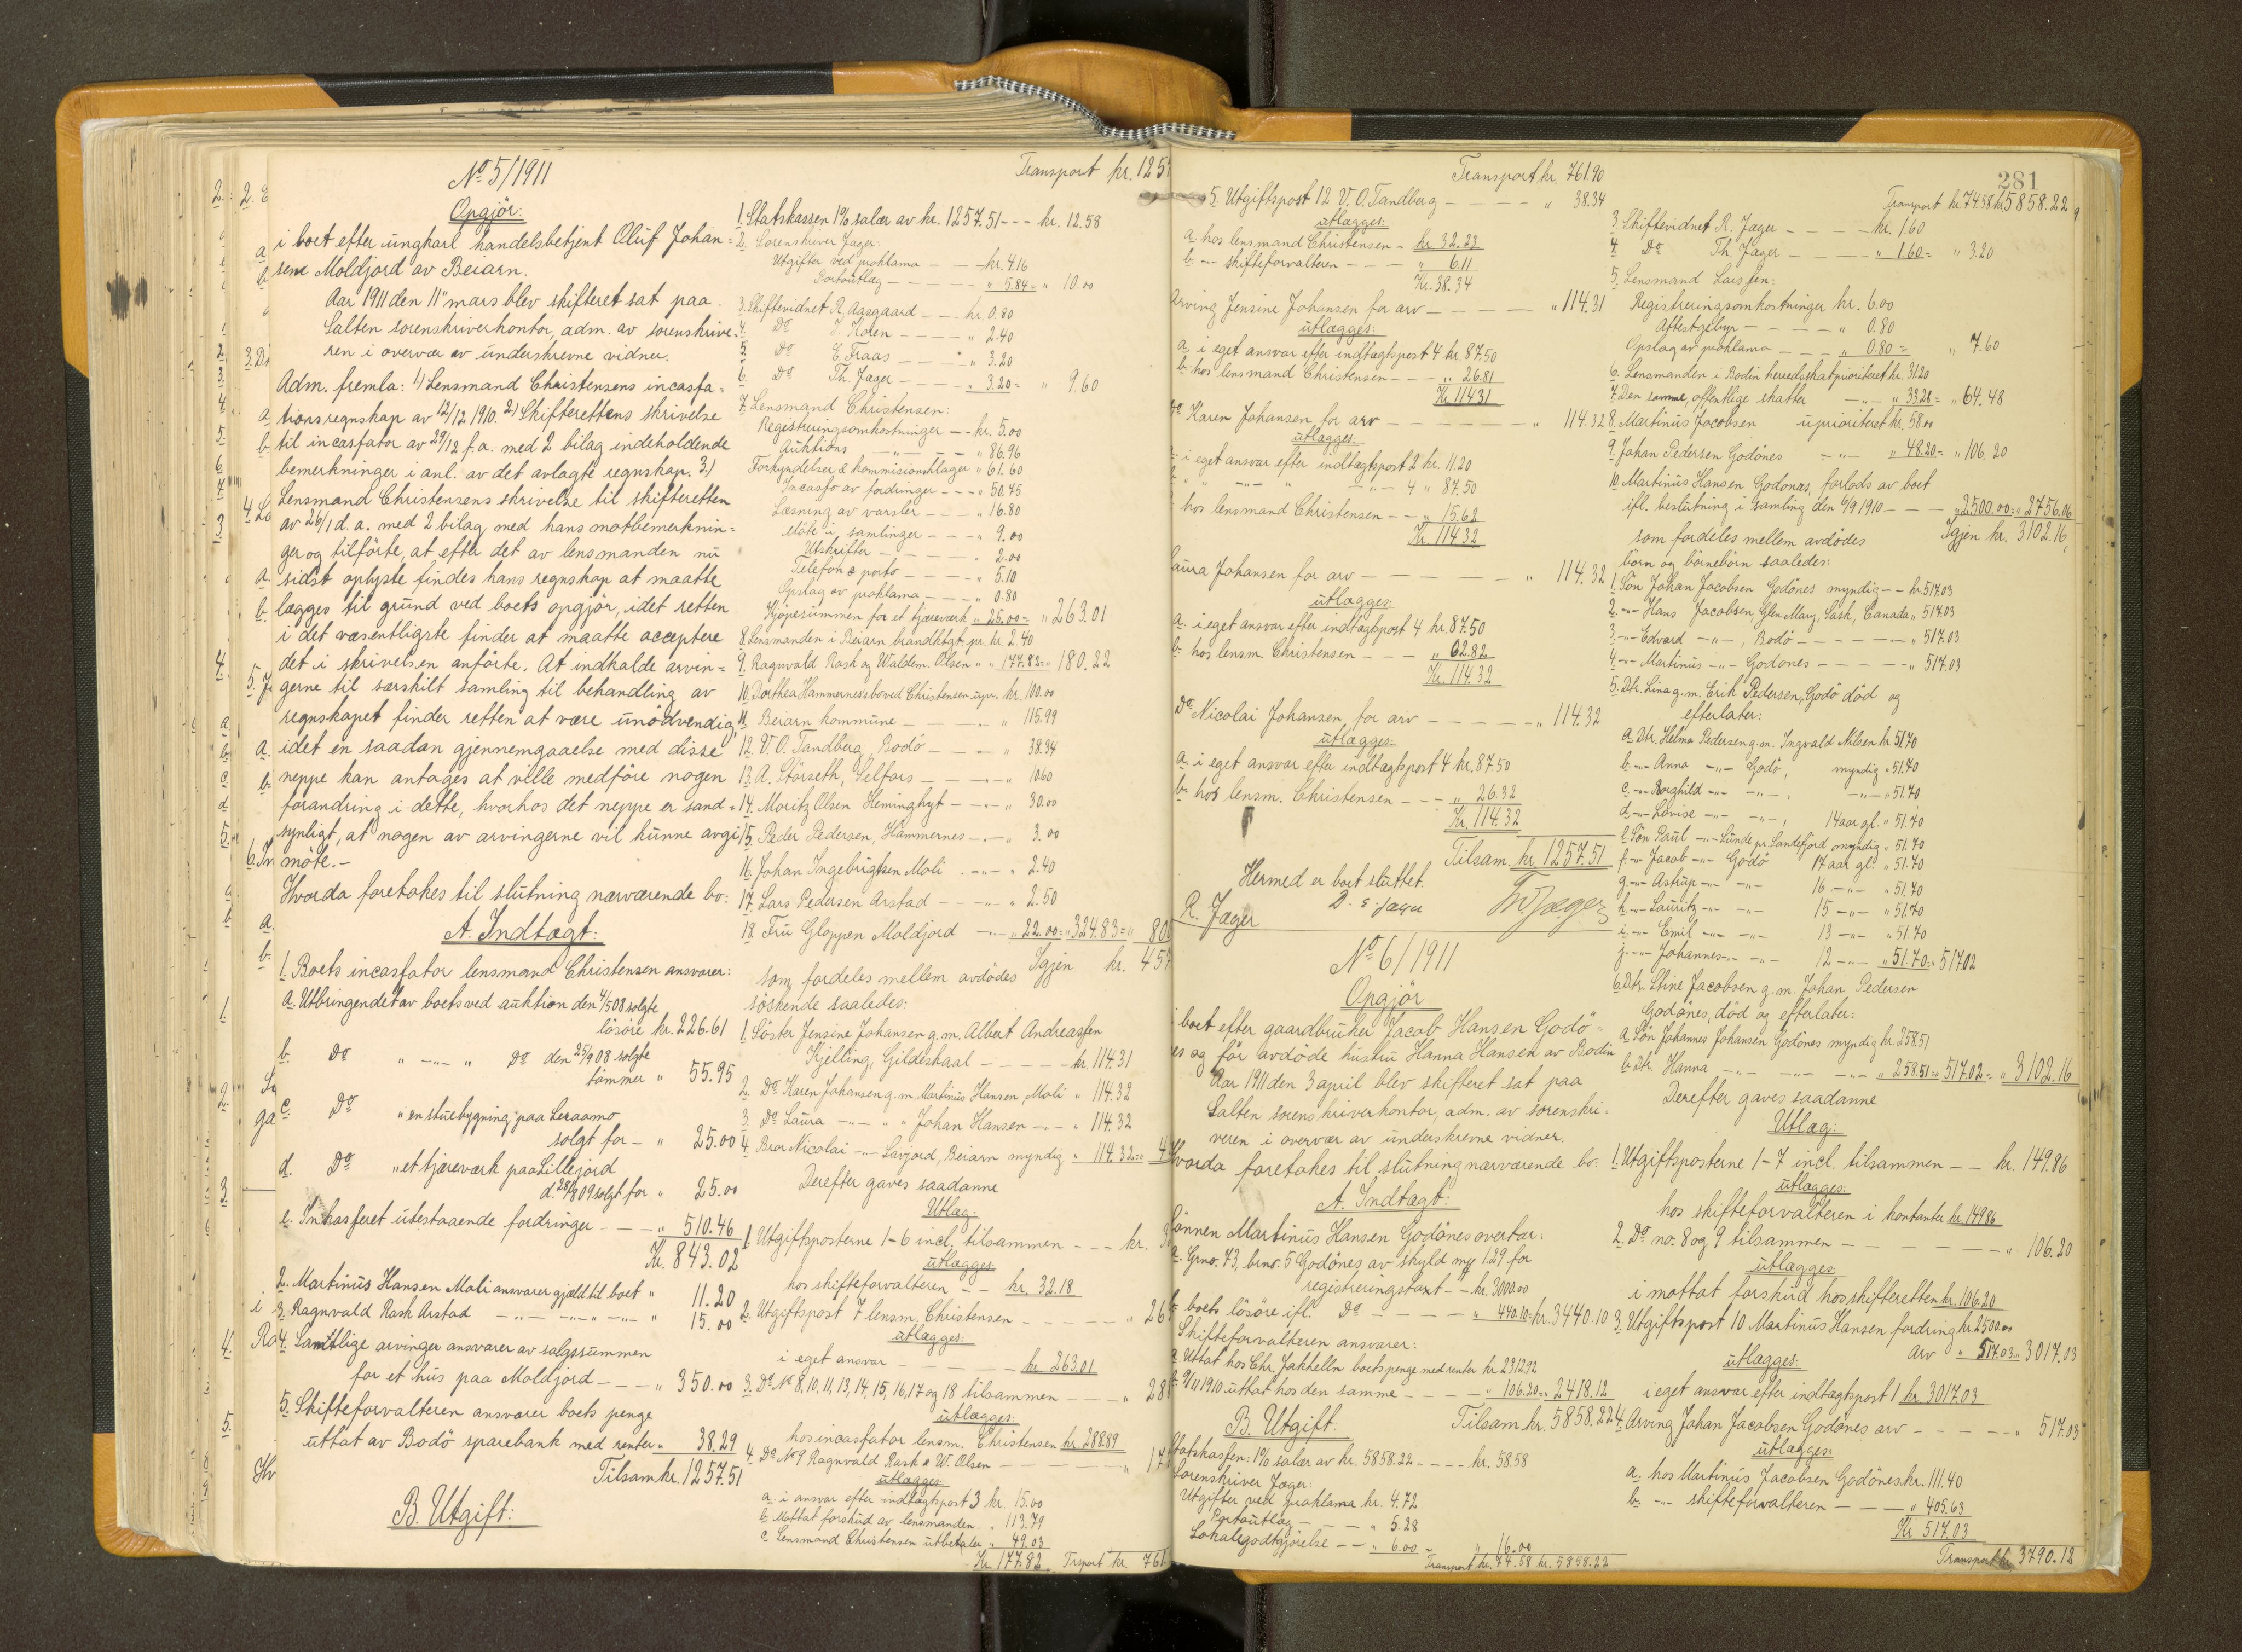 No 5/1911
Opgjör:
i boet efter ungkarl handelsbetjent Oluf Johan=
sens Moldjord av Beiarn.
Aar 1911 den 11te mars blev skifteret sat paa
Salten sorenskriverkontor, adm. av sorenskrive-
ren i overvær av underskrevne vidner.
Adm. fremla: 1) Lensmand Christensens incassa=
tionsregnskap av 12/12 1910. 2) Skifterettens skrivelse
til incassator av 29/12 f.a. med 2 bilag indeholdende
bemerkninger i anl. av det avlagte regnskap. 3.)
Lensmand Christensens skrivelse til skifteretten
av 26/1 d.a. med 2 bilag med hans motbemerknin=
ger og tilförte, at efter det av lensmanden nu
sidst oplyste findes hans regnskap at maatte
lægges til grund ved boets opgjör, idet retten
i det væsentligste finder at maatte acceptere
det i skrivelsen anförte. At indkalde arvin=
gerne til særskilt samling til behandling av
regnskapet finder retten at være unödvendig,
idet en saadan gjennemgaaelse med disse
neppe kan antages at ville medföre nogen
forandring i dette, hvorhos det neppe er sand=
synligt, at nogen av arvingerne vil kunne avgi
möte.-
Hvorda foretakes til slutning nærværende bo:
A. Indtægt:
1. Boets incassator lensmand Christensen ansvarer:
a. Utbringendet av boets ved auktion den 4/5 08 solgte
lösöre kr. 226.61
b. Do " -"- " Do den 25/9 08 solgte
tömmer " 55.95
c. Do " en stuebygning paa Leraamo
solgt for - " 25.00
d. Do " et tjæreværk paa Lillejord
d. 28/8 09 solgt for " 25.00
e. Inkasseret utestaaende fordringer - - - " 510.46
Kr. 843.02
2. Martinus Hansen Moli ansvarer gjæld til boet " 11.20
3. Ragnvald Rask Arstad -"- -"- " -"- " 15.00
4. Samtlige arvinger ansvarer av salgssummen
for et hus paa Moldjord - - - " 350.00
5. Skifteforvalteren ansvarer boets penge
uttat av Bodö sparebank med renter " 38.29
Tilsam kr. 1257.51
B. Utgift:
Transport kr. 125
1. Statskassen 1% salær av kr. 1257.51 - - - kr. 12.58
2. Sorenskriver Jæger:
Utgifter ved proklama - - - kr. 4.16
Portoutlæg - - - - - " 5.84 = " 10.00
3. Skiftevidnet R. Aasgaard - - - kr. 0.80
4. Do J. Koren - - - - " 2.40
5. Do E. Fraas - - - - " 3.20
6. Do Th. Jæger - - - - " 3.20 = " 9.60
7. Lensmand Christensen:
Registreringsomkostninger - - kr. 5.00
Auktions -"- - - - " 86.96
Forkyndelser & kommisionsutlæger " 61.60
Incasso av fordringer - - - " 50.45
Læsning av varsler - - - " 16.80
Möte i samlinger - - - " 9.00
Utskrifter - - - - - " 2.00
Telefon & porto - - - - " 5.10
Opslag av proklama - - - " 0.80
Kjöpesummen for et tjæreværk " 25.00 = " 263.01
8. Lensmanden i Beiarn brandktgt. pr. kr. 2.40
9. Ragnvald Rask og Waldem. Olsen " " 177.82 = " 180.22
10. Dorthea Hammernes's bo ved Christensen upr. kr. 100.00
11. Beiarn kommune - - - - " 115.99
12. V. O. Tandberg, Bodö - - - " 38.34
13. A. Störseth, Selfors - - - " 10.60
14. Moritz Olsen Heminghyt - - - " 30.00
15. Peder Pedersen, Hammernes -.- " 3.00
16. Johan Ingebrigtsen Moli - -"- " 2.40
17. Lars Pedersen Arstad - - -"- " 2.50
18. Fru Gloppen Moldjord -"- " 22.00 = " 324.83 = " 80
Igjen kr. 457
som fordeles mellem avdödes
söskende saaledes:
1. Söster Jensine Johansen g.m. Albert Andreassen
Kjelling, Gildeskaal - - - - - kr. 114.31
2. Do Karen Johansen g.m. Martinus Hansen, Moli " 114.32
3. Do Laura -"- " " Johan Hansen -"- " 114.32
4. Bror Nicolai -"- Savjord, Beiarn myndig " 114.32 = " 4
Derefter gaves saadanne
Utlæg:
1. Utgiftsposterne 1-6 incl. tilsammen - - - kr. 3
utlægges:
hos skifteforvalteren - - kr. 32.18
2. Utgiftspost 7 lensm. Christensen - - - - - " 26
utlægges:
i eget ansvar - - - - - kr. 263.01
3. Do No 8, 10, 11, 13, 14, 15, 16, 17 og 18 tilsammen - - " 28
utlægges:
hos incassator lensm. Christensen kr. 288.89
4. Do No 9 Ragnvald Rask & W. Olsen - - - - - " 17
utlægges:
a. i ansvar efter indtægtspost 3 kr. 15.00
b. Mottat forskud av lensmanden " 113.79
c. Lensmand Christensen utbetaler " 49.03
Kr. 177.82 Trsport kr. 761
Transport kr. 761.90
5. Utgiftspost 12 V. O. Tandberg - - - - " 38.34
utlægges:
a. hos lensmand Christensen - kr. 32.23
b. -"- skifteforvalteren - - - " 6.11
Kr. 38.34
Arving Jensine Johansen for arv - - - - - " 114.31
utlægges:
a. i eget ansvar efter indtægtspost 4 kr. 87.50
b. hos lensmand Christensen - - - " 26.81
Kr. 114.31
Do Karen Johansen for arv - - - - - - " 114.32
utlægges:
i eget ansvar efter indtægtspost 2 kr. 11.20
" " -"- " -"- 4 " 87.50
hos lensmand Christensen - - " 15.62
Kr. 114.32
Laura Johansen for arv - - - - - - " 114.32
utlægges:
a. i eget ansvar efter indtægtspost 4 kr. 87.50
b. hos lensm. Christensen - - - " 62.82
Kr. 114.32
Do Nicolai Johansen for arv - - - - - " 114.32
utlægges:
a. i eget ansvar efter indtægtspost 4 kr. 87.50
b. hos lensm. Christensen - - - " 26.32
Kr. 114.32
Tilsam. kr. 1257.51
Hermed er boet sluttet.
R. Jæger
No 6/1911
Opgjör
i boet efter gaardbruker Jacob Hansen Godö=
nes og för avdöde hustru Hanna Hansen av Bodin
Aar 1911 den 3 april blev skifteret sat paa
Salten sorenskriverkontor, adm. av sorenskri=
veren i overvær av underskrevne vidner.
Hvorda foretakes til slutning nærværende bo:
A. Indtægt:
Sönnen Martinus Hansen Godönes overtar:
a. Grno. 73, brno. 5 Godönes av skyld mrk 1.29 for
registreringstaxt - - kr. 3000.00
b. boets lösöre ifl. Do - - - - " 440.10 = kr. 3440.10
Skifteforvalteren ansvarer:
a. Uttat hos Chr. Jakhelln boets penge med renter kr. 2312.92
b. 9/11 1910 uttat hos den samme - - - - " 106.20 = " 2418.12
Tilsam kr. 5858.22
B. Utgift:
Statskassen: 1% salær av kr. 5858.22 - - - - kr. 58.58
Sorenskriver Jæger:
Utgifter ved proklama kr. 4.72
Portoutlæg - - - - " 5.28
Lokalegodtgjörelse - - " 6.00 = " 16.00
Transport kr. 74.58 kr. 5858.22
281
Transport kr. 74.58 kr. 5858.22
3. Skiftevidnet R. Jæger - - - - kr. 1.60
4. Do Th. Jæger - - - - " 1.60 = " 3.20
5. Lensmand Larssen:
Registreringsomkostninger kr. 6.00
Attestgebyr - - - - - " 0.80
Opslag av proklama - - - " 0.80 = " 7.60
6. Lensmanden i Bodin herredsskat prioriteret kr. 31.20
7. Den samme, offentlige skatter -"- " 33.28 = " 64.48
8. Martinus Jacobsen uprioriteret kr. 58.00
9. Johan Pedersen Godönes -"- " 48.20 = " 106.20
10. Martinus Hansen Godönes, forlods av boet
ifl. beslutning i samling den 6/9 1910 - - - " 2500.00 = " 2756.06
Igjen kr. 3102.16,
som fordeles mellem avdödes
börn og börnebörn saaledes:
1. Sön Johan Jacobsen Godönes myndig - - kr. 517.03
2. -"- Hans Jacobsen, Glen Mary, Sask, Canada " 517.03
3. -"- Edvard -"-, Bodö - - - - - " 517.03
4. -"- Martinus -"- Godönes - - - - " 517.03
5. Dtr. Lina g.m. Erik Pedersen, Godö död og
efterlater:
a. Dtr. Helma Pedersen g.m. Ingvald Nilsen kr. 51.70
b. -"- Anna -"- Godö, myndig " 51.70
c. -"- Borghild -"- -"-, -"- " 51.70
d. -"- Lovise -"- -"-, 14 aar gl. " 51.70
e. Sön Paul -"- Lunde pr. Sandefjord myndig " 51.70
f. -"- Jacob -"- Godö 17 aar gl. " 51.70
g. -"- Astrup -"- -"- 16 -"- " 51.70
h. -"- Lauritz -"- -"- 15 -"- " 51.70
i. -"- Emil -"- -"- 13 -"- " 51.70
j. -"- Johannes -"- -"- 12 -"- " 51.70 = " 517.02
6. Dtr. Stine Jacobsen g.m. Johan Pedersen
Godönes, död og efterlater:
a. Sön Johannes Johansen Godönes myndig kr. 258.51
b. Dtr. Hanna -"- -"- -"- " 258.51 = 517.02 = " 3102.16
Derefter gaves saadanne
Utlæg:
1. Utgiftsposterne 1-7 incl. tilsammen - - kr. 149.86
utlægges:
hos skifteforvalteren i kontanter kr. 149.86
2. Do no. 8 og 9 tilsammen - - - - - - " 106.20
utlægges:
i mottat forskud hos skifteretten kr. 106.20
3. Utgiftspost 10 Martinus Hansen fordring kr. 2500.00
arv " 517.03 = 3017.03
utlægges:
i eget ansvar efter indtægtspost 1 kr. 3017.03
4. Arving Johan Jacobsen Godönes arv - - - - - " 517.03
utlægges:
a. hos Martinus Jacobsen Godönes kr. 111.40
b. -"- skifteforvalteren - - - " 405.63
Kr. 517.03
Transport kr. 3790.12